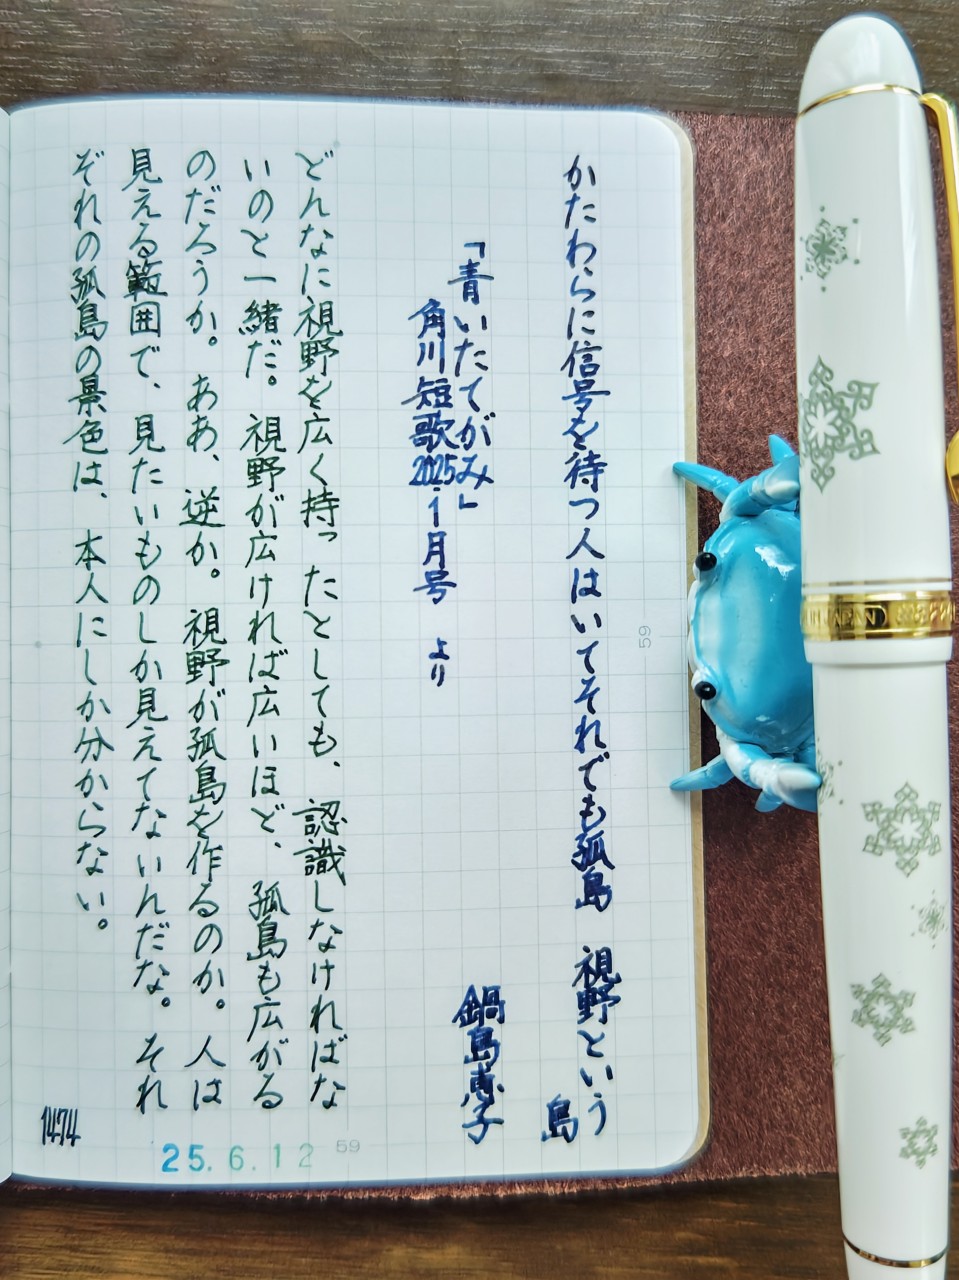 かたわらに信号を待つ人はいてそれでも孤島　視野という
島
「青いたてがみ」
鍋島恵子
角川短歌2025.1月号　より
どんなに視野を広く持ったとしても、認識しなければな
いのと一緒だ。視野が広ければ広いほど、孤島も広がる
のだろうか。ああ、逆か。視野が孤島を作るのか。人は
見える範囲で、見たいものしか見えてないんだな。それ
ぞれの孤島の景色は、本人にしか分からない。
1474
25.6.12
59
59